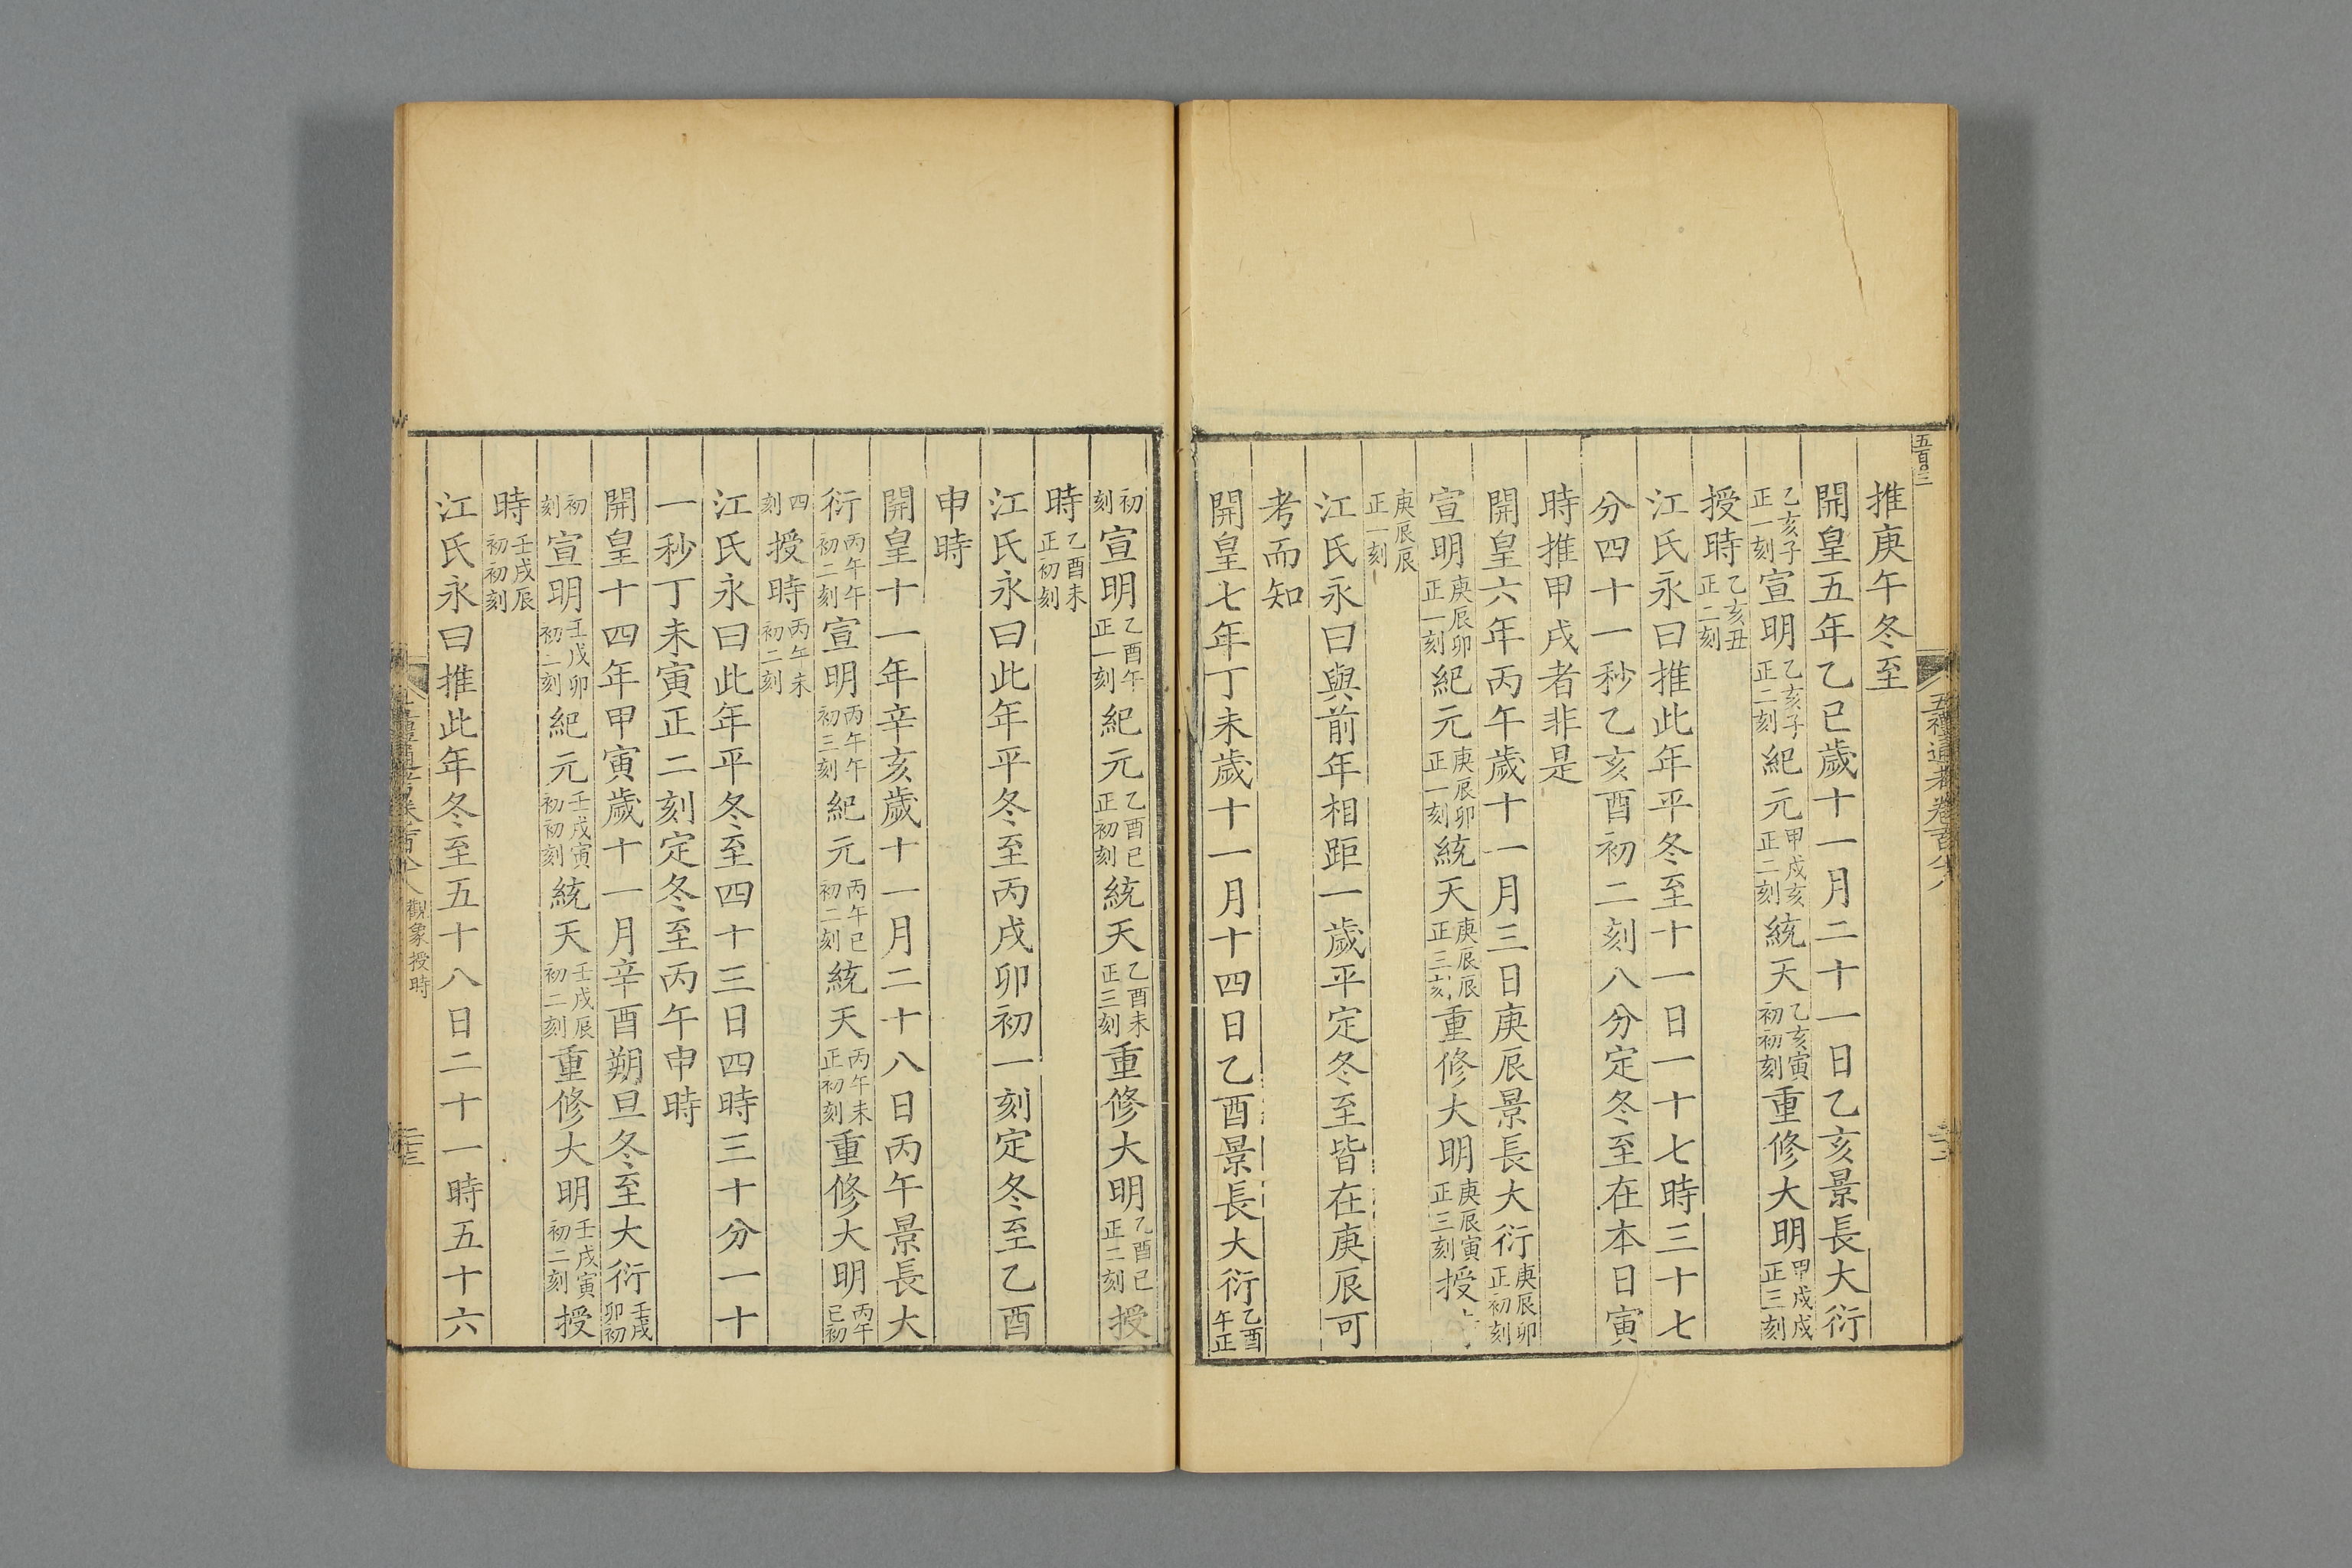 五百三
五禮通考卷百八
推庚午冬至
開皇五年乙巳歲十一月二十一日乙亥景長大衍
乙亥子正一刻宣明乙亥子正二刻紀元甲戌亥正二刻統天乙亥寅初初刻重修大明甲戌戌正三刻
授時乙亥丑正二刻
江氏永曰推此年平冬至十一日一十七時三十七
分四十一秒乙亥酉初二刻八分定冬至在本日寅
時推甲戌者非是
開皇六年丙午歲十一月三日庚辰景長大衍庚辰卯正初刻
宣明庚辰卯正一刻紀元庚辰卯正一刻統天庚辰辰正三刻重修大明庚辰寅正三刻授
庚辰辰正一刻
江氏永曰與前年相距一歲平定冬至皆在庚辰可
考而知
開皇七年丁未歲十一月十四日乙酉景長大衍乙酉午正
初刻宣明乙酉午正一刻紀元乙酉巳正初刻統天乙酉未正三刻重修大明乙酉巳正二刻授
時乙酉未正初刻
江氏永曰此年平冬至丙戌卯初一刻定冬至乙酉
申時
開皇十一年辛亥歲十一月二十八日丙午景長大
衍丙午午初二刻宣明丙午午初三刻紀元丙午巳初二刻統天丙午未正初刻重修大明丙午巳初
四刻授時丙午未初二刻
江氏永曰此年平冬至四十三日四時三十分一十
一秒丁未寅正二刻定冬至丙午申時
開皇十四年甲寅歲十一月辛酉朔旦冬至大衍壬戌卯初
初刻宣明壬戌卯初二刻紀元壬戌寅初初刻統天壬戌辰初二刻重修大明壬戌寅初二刻授
時壬戌辰初初刻
江氏永曰推此年冬至五十八日二十一時五十六
觀象授時